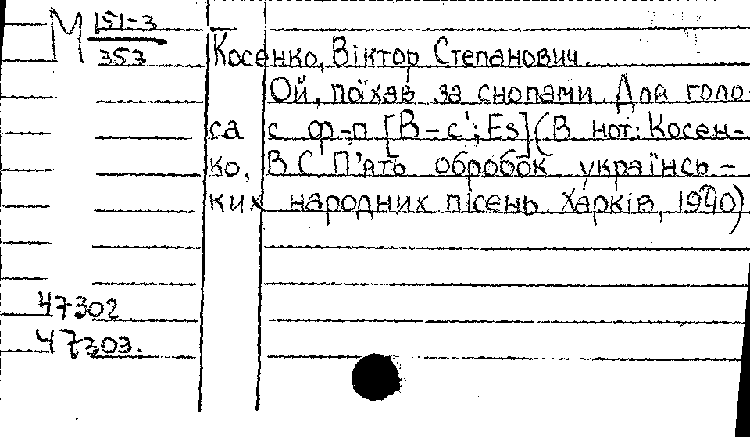 М 151-3
353
Косенко, Віктор Степанович.
Ой, поїхав за снопами. Для голо-
са с ф-п [B-c'; Es] (В нот: Косен-
ко, В С П'ять обробок українсь-
ких народних пісень Харків,
47302
47303.